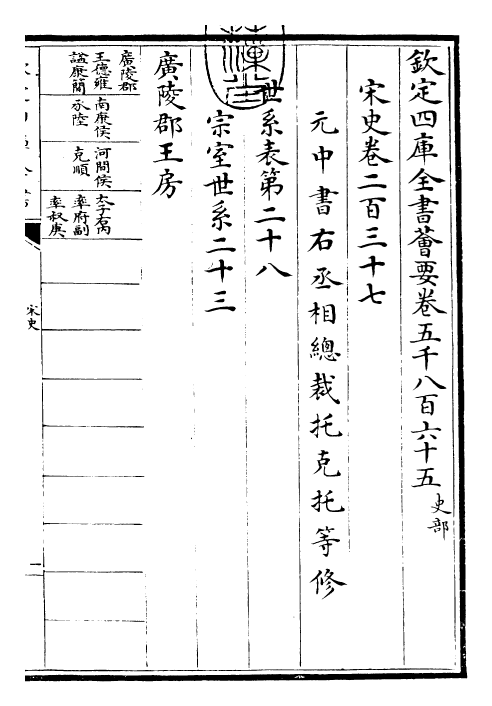 欽定四庫全書薈要卷五千八百六十五 史部
宋史卷二百三十七
元中書右丞相總裁托克托等修
世系表第二十八
宗室世系二十三
廣陵郡王房
廣陵郡
王德雍
諡康簡
南康侯
承睦
河間侯
克順
太子右內
率府副
率叔庚
宋史
一